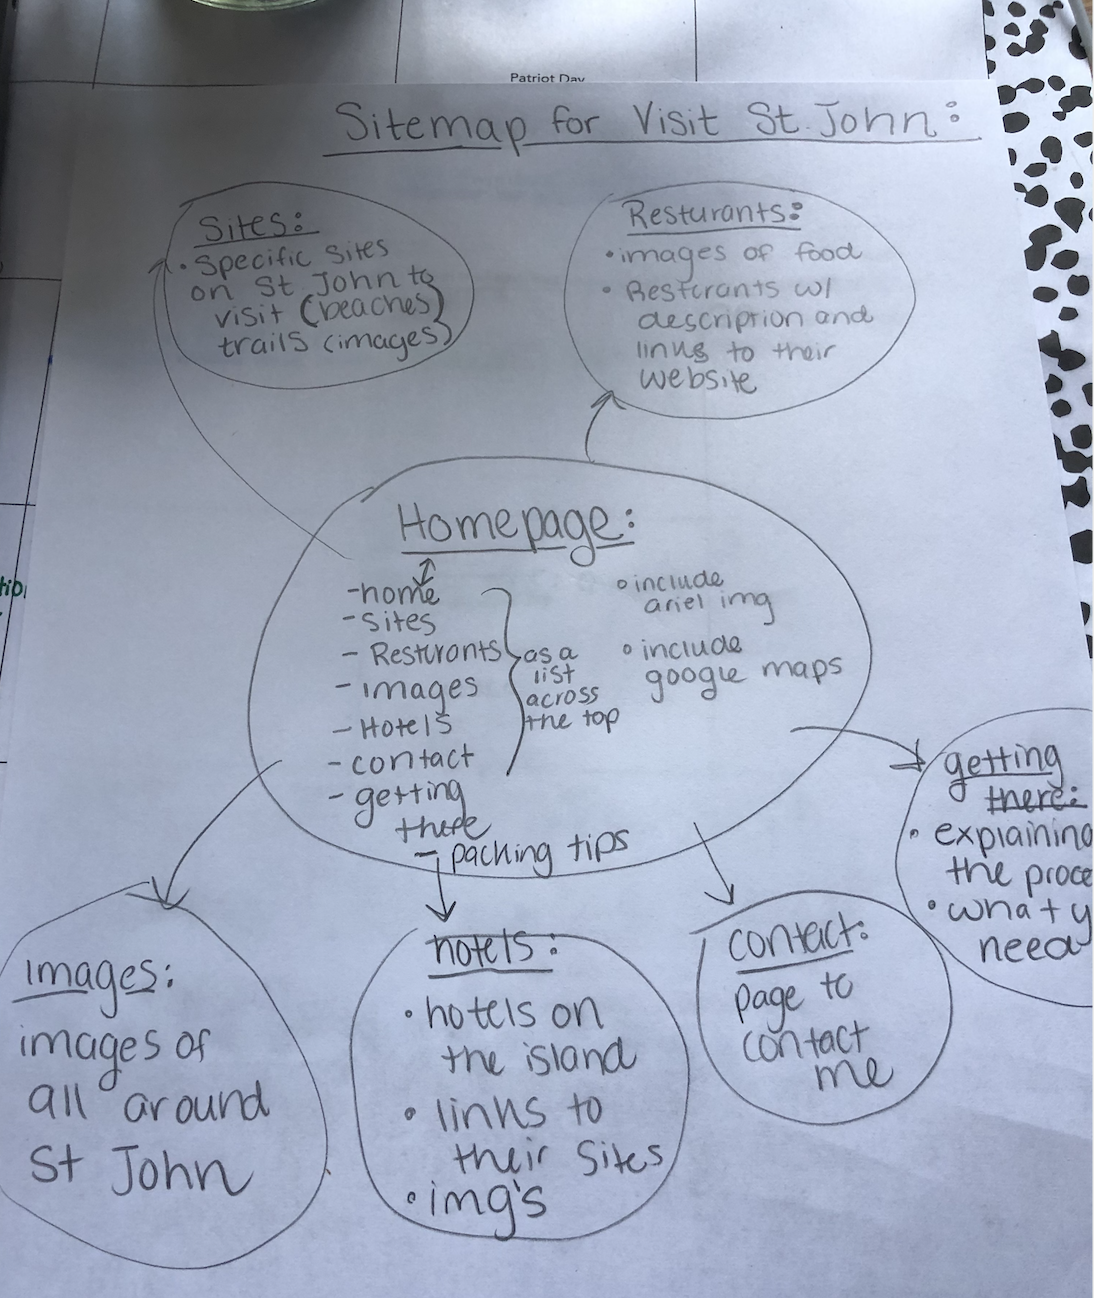 Patriot Day
Sitemap for Visit St. John:
Sites:
• Specific Sites
on St John to
visit (beaches)
trails (images)
Resturants:
• images of food
• Resturants w/
description and
links to their
website
Homepage:
-home
-sites
- Resturants
- images
- Hotels
- contact
- getting
there
- packing tips
as a
list
across
the top
• include
ariel img
• include
google maps
getting
there:
• explaining
the proce
• what y
need
images:
images of
all around
St John
hotels:
• hotels on
the island
• links to
their Sites
• img's
contact:
page to
contact
me